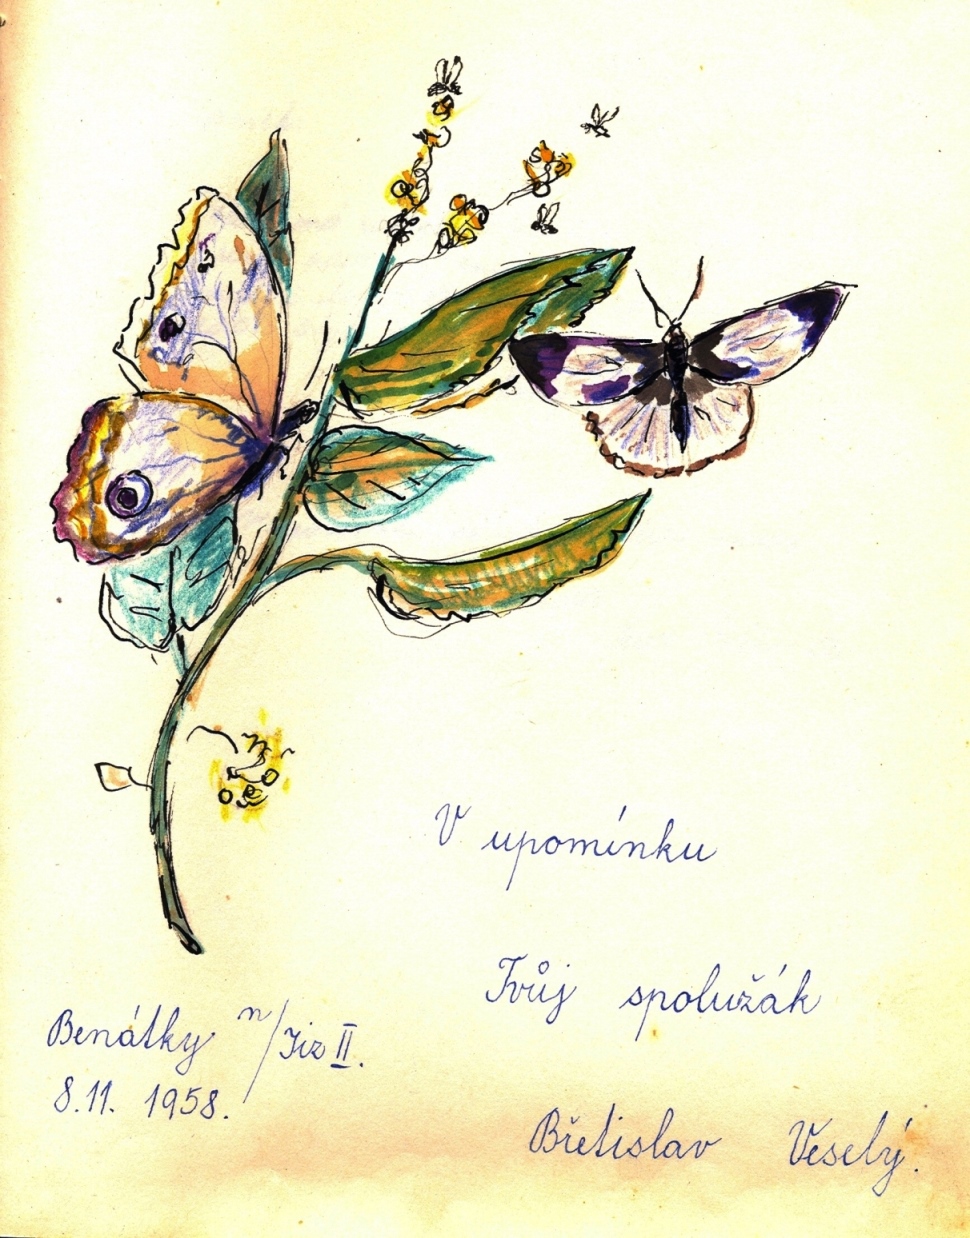 V upomínku
Tvůj spolužák
Benátky n/Jiz II.
8.11. 1958.
Břetislav Veselý.